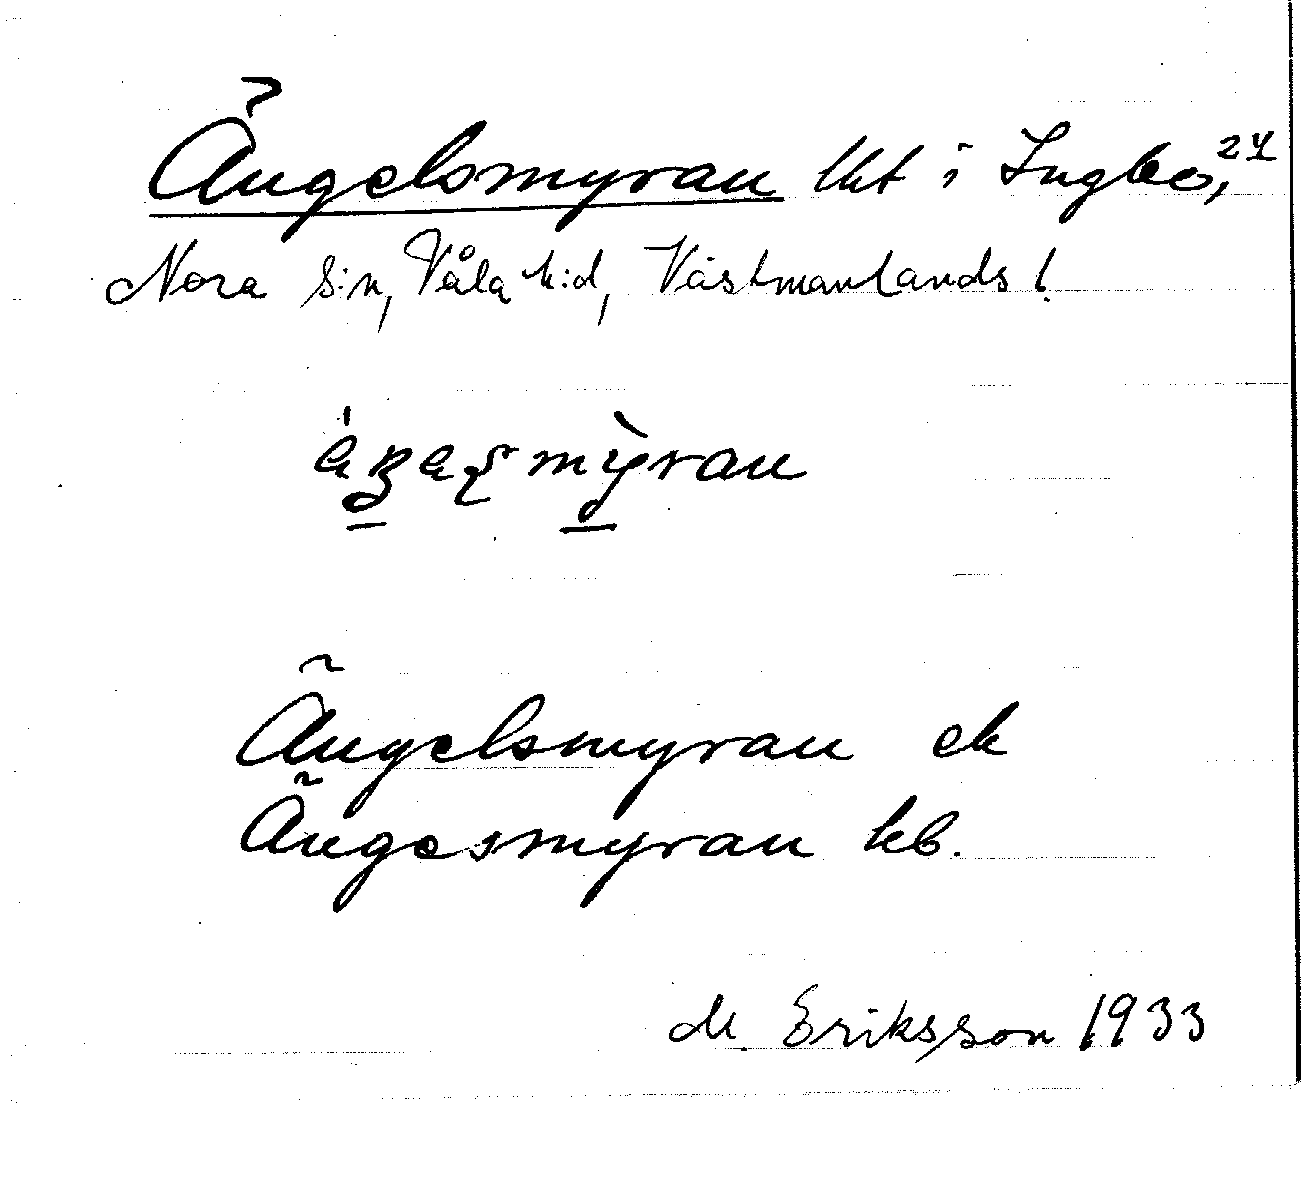 Ängelsmyran lht i Ingbo, 24
Nora s:n, Våla h:d, Västmanlands l.
myran
Ängelsmyran ek
Ängesmyran kb.
M. Eriksson 1933